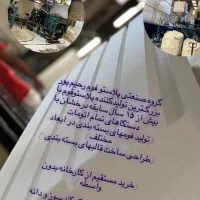 گروه صنعتی پلاستوفوم رحیم پور
بزرگترین تولیدکننده پلاستوفوم با
بیش از ۱۵ سال سابقه درخشان با
دستگاهای تمام اتومات
(تولید فومهای بسته بندی در ابعاد
مختلف)
(طراحی ساخت قالبهای بسته بندی)
(خرید مستقیم از کارخانه بدون
واسطه)